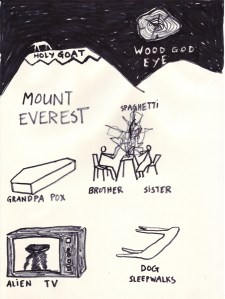 HOLY GOAT
WOOD GOD
EYE
MOUNT
EVEREST
SPAGHETTI
GRANDPA POX
BROTHER SISTER
ALIEN TV
DOG
SLEEPWALKS